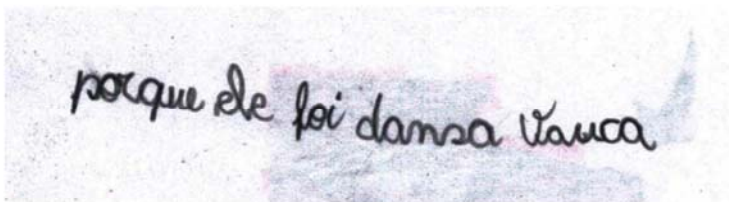 porque ele foi dansa vauca